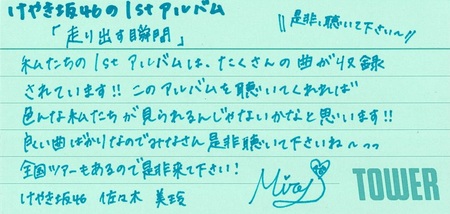 けやき坂46の1stアルバム
「走り出す瞬間」
\\是非、聴いて下さい〜//
私たちの1stアルバムは、たくさんの曲が収録
されています!! このアルバムを聴いてくれれば
色んな私たちが見られるんじゃないかなと思います!!
良い曲ばかりなのでみなさん是非聴いて下さいね〜っっ
全国ツアーもあるので是非来て下さい!
けやき坂46 佐々木 美玲
Mirei
TOWER